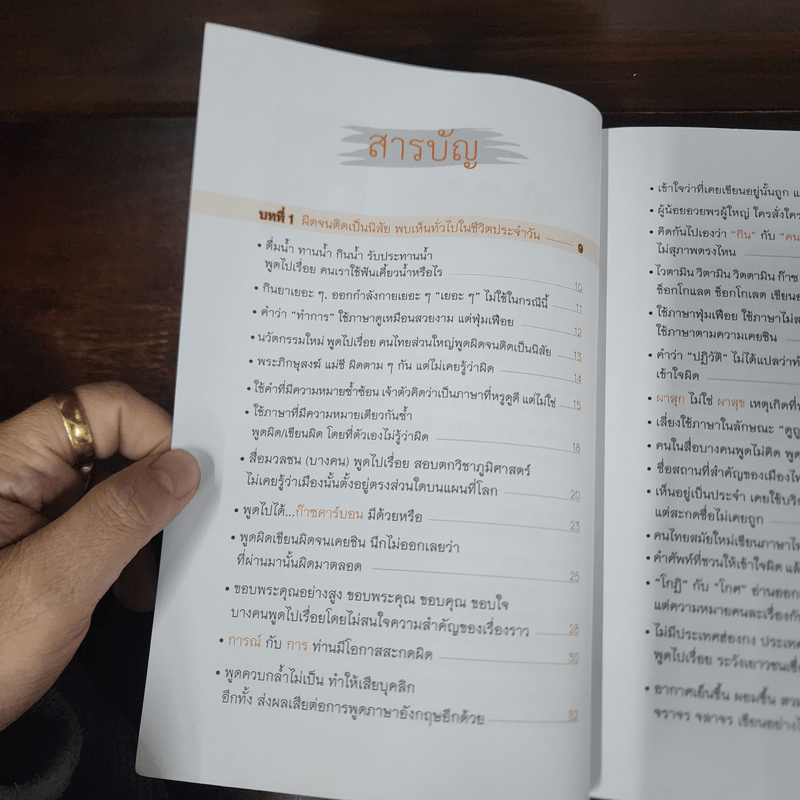 สารบัญ
บทที่ 1 ผิดจนติดเป็นนิสัย พบเห็นทั่วไปในชีวิตประจำวัน 9
• ดื่มน้ำ ทานน้ำ กินน้ำ รับประทานน้ำ
พูดไปเรื่อย คนเราใช้ฟันเคี้ยวน้ำหรือไร 10
• กินยาเยอะ ๆ, ออกกำลังกายเยอะ ๆ "เยอะ ๆ" ไม่ใช้ในกรณีนี้ 11
• คำว่า "ทำการ" ใช้ภาษาดูเหมือนสวยงาม แต่ฟุ่มเฟือย 12
• นวัตกรรมใหม่ พูดไปเรื่อย คนไทยส่วนใหญ่พูดผิดจนติดเป็นนิสัย 13
• พระภิกษุสงฆ์ แม่ชี ผิดตาม ๆ กัน แต่ไม่เคยรู้ว่าผิด 14
• ใช้คำที่มีความหมายซ้ำซ้อน เจ้าตัวคิดว่าเป็นภาษาที่หรูดูดี แต่ไม่ใช่ 15
• ใช้ภาษาที่มีความหมายเดียวกันซ้ำ
พูดผิด/เขียนผิด โดยที่ตัวเองไม่รู้ว่าผิด 18
• สื่อมวลชน (บางคน) พูดไปเรื่อย สอบตกวิชาภูมิศาสตร์
ไม่เคยรู้ว่าเมืองนั้นตั้งอยู่ตรงส่วนใดบนแผนที่โลก 20
• พูดไปได้...ก๊าซคาร์บอน มีด้วยหรือ 23
• พูดผิดเขียนผิดจนเคยชิน นึกไม่ออกเลยว่า
ที่ผ่านมานั้นผิดมาตลอด 25
• ขอบพระคุณอย่างสูง ขอบพระคุณ ขอบคุณ ขอบใจ
บางคนพูดไปเรื่อยโดยไม่สนใจความสำคัญของเรื่องราว 28
• การณ์ กับ การ ท่านมีโอกาสสะกดผิด 30
• พูดควบกล้ำไม่เป็น ทำให้เสียบุคลิก
อีกทั้ง ส่งผลเสียต่อการพูดภาษาอังกฤษอีกด้วย 32
• เข้าใจว่าที่เคยเขียนอยู่นั้นถูก
• ผู้น้อยอวยพรผู้ใหญ่ ใครสั่งใคร
• คิดกันไปเองว่า "กิน" กับ
ไม่สุภาพตรงไหน
• ไวตามิน วิตามิน วิตตามิน ก๊าซ
ช็อกโกแลต ช็อกโกเลต
• ใช้ภาษาฟุ่มเฟือย
ใช้ภาษาตามความเคยชิน
• คำว่า "ปฏิวัติ" ไม่ได้แปลว่า
เข้าใจผิด
• ผาสุก ไม่ใช่ ผาสุข เหตุเกิดที่
• เลี่ยงใช้ภาษาในลักษณะ
• คนในสื่อบางคนพูดไม่คิด
• ชื่อสถานที่สำคัญของเมืองไทย
• เห็นอยู่เป็นประจำ
แต่สะกดชื่อไม่เคยถูก
• คนไทยสมัยใหม่เขียนภาษาไทย
• คำศัพท์ที่ชวนให้เข้าใจผิด
• "โกฏิ" กับ "โกศ"
แต่ความหมายคนละเรื่องกัน
• ไม่มีประเทศฮ่องกง
พูดไปเรื่อย ระวังเยาวชน
• อากาศเย็นขึ้น ผอมขึ้น
จราจร จลาจร